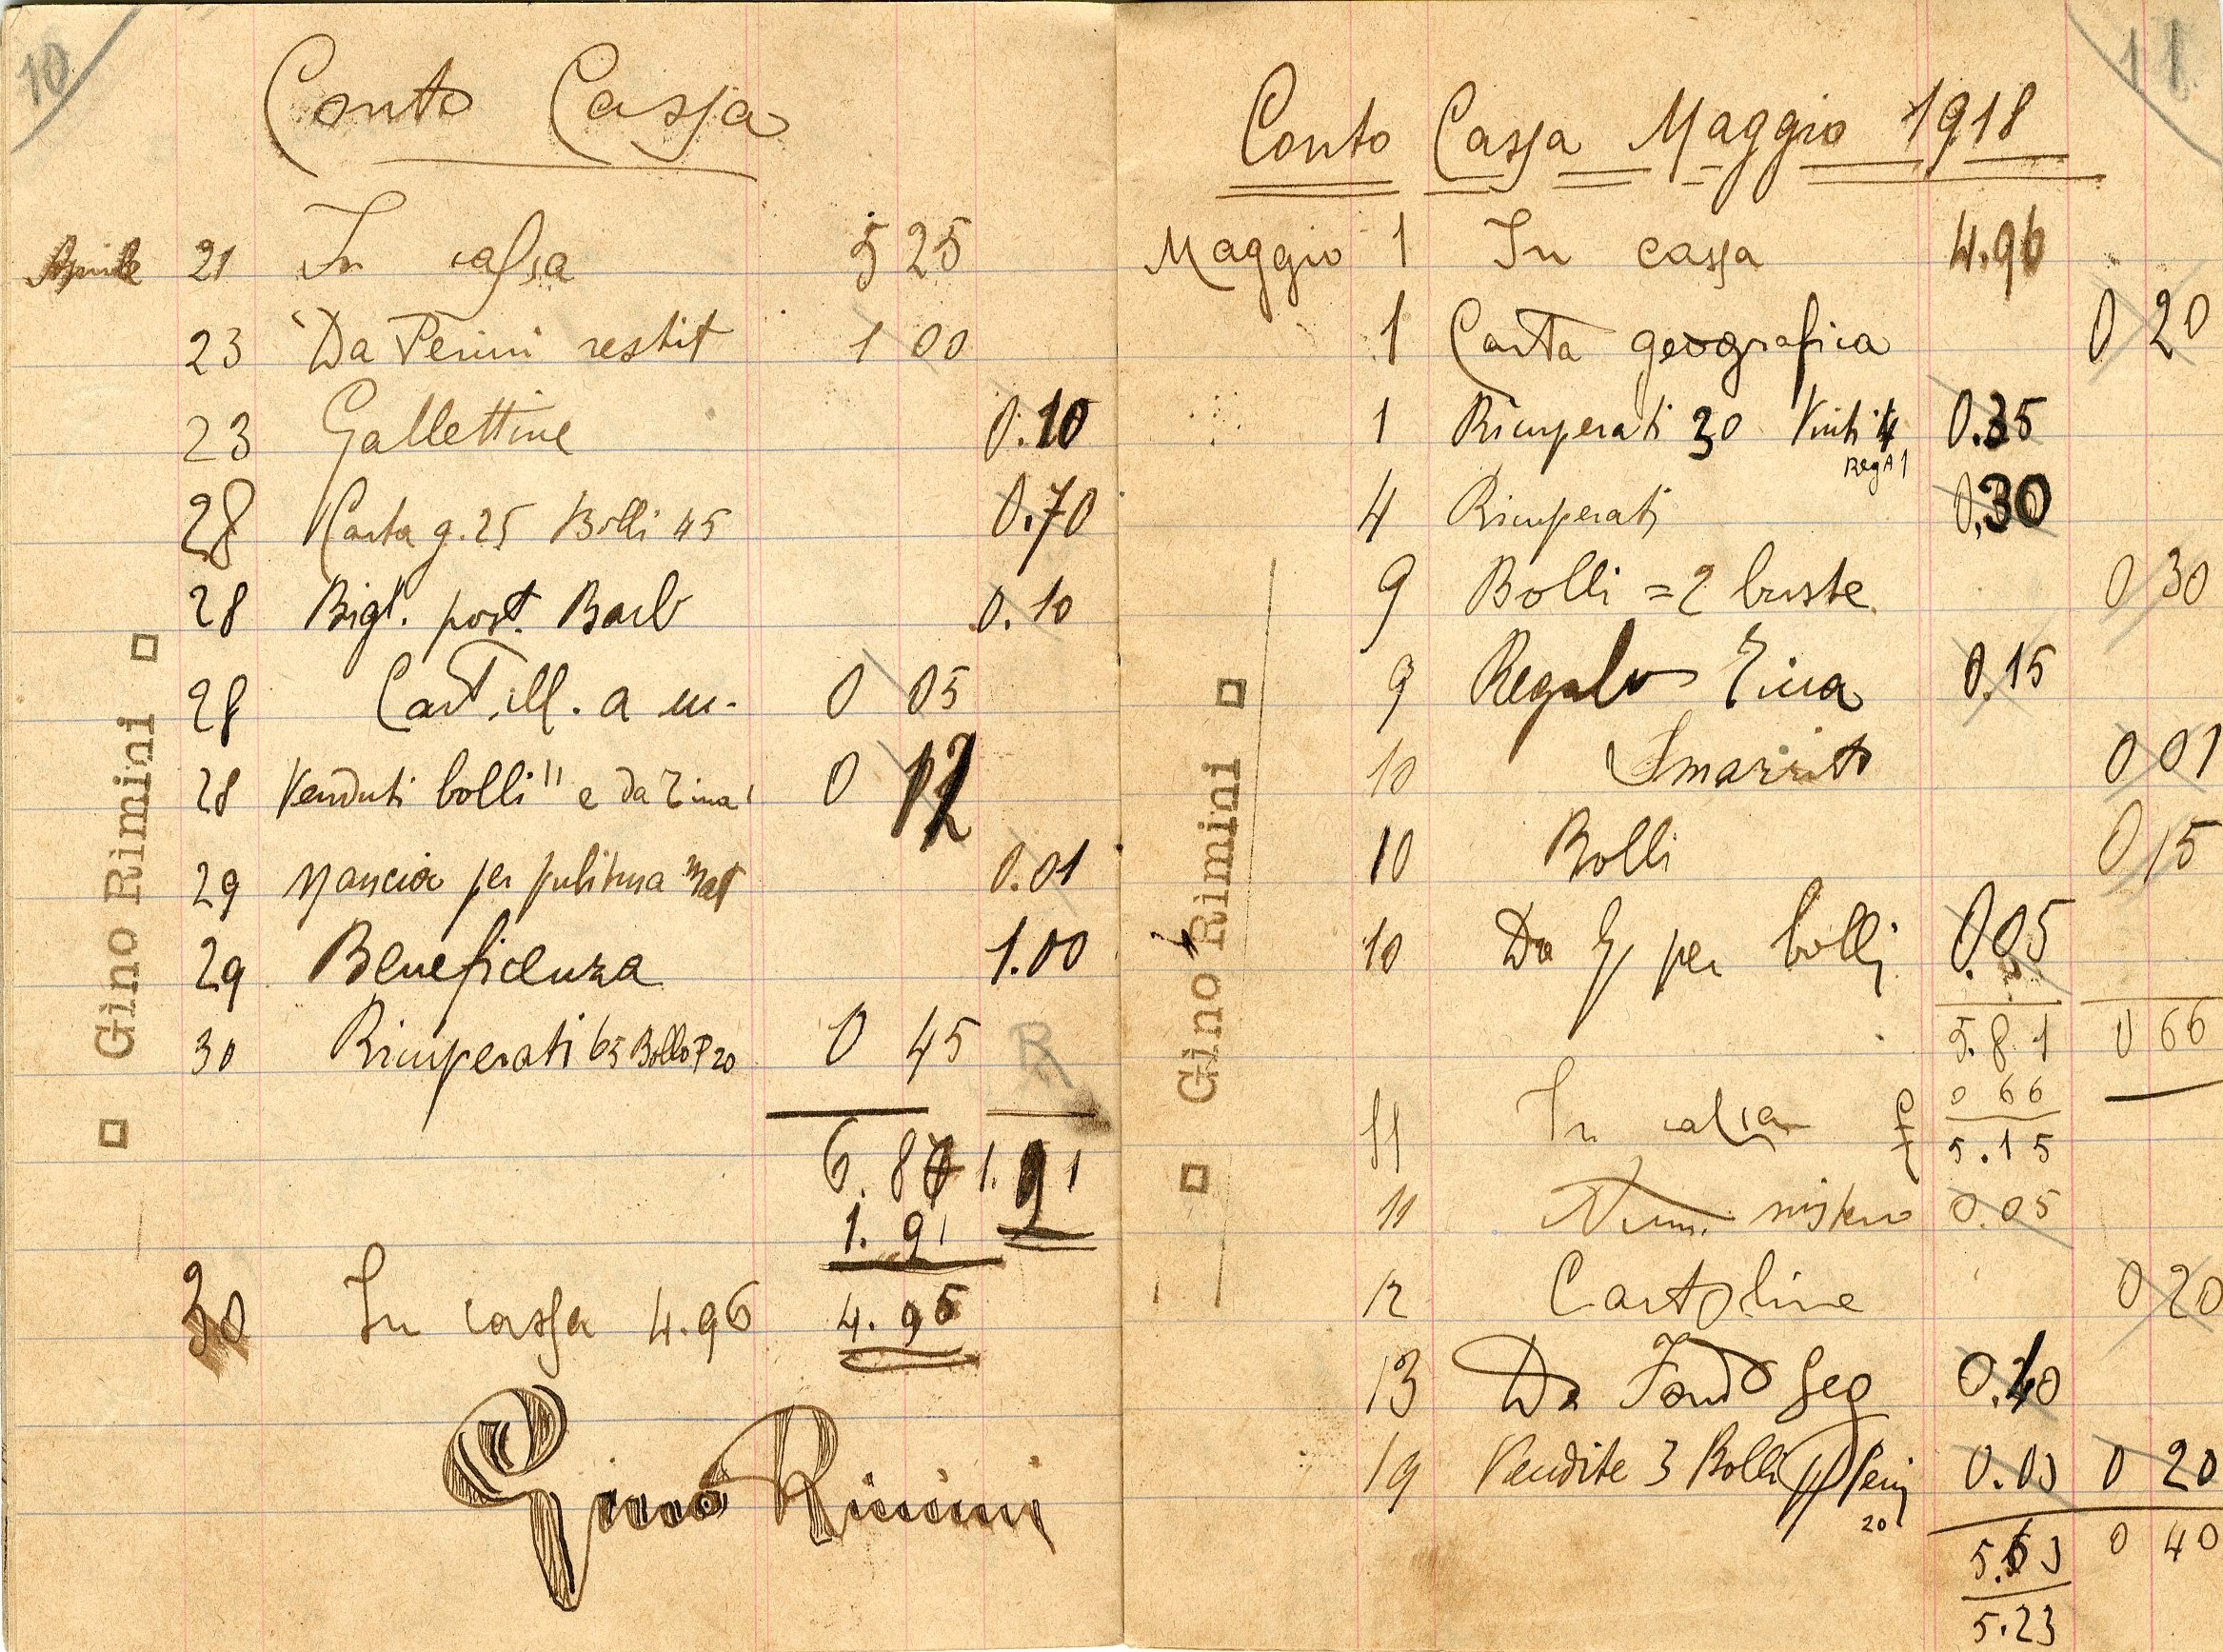 10
Conto Cassa
Aprile 21 In cassa 5 25
23 Da Perini restit 1 00
23 Gallettine 0.10
28 Carta g. 25 Bolli 45 0.70
28 Bigl. post. Barb 0.10
28 Cart. ill. a m. 0 05
28 Venduti bolli " e da Zina 0 12
29 Mancia per pulitura Mat 0.01
29 Beneficenza 1.00
30 Ricuperati 65 Bollo P 20 0 45
R
6.87 1.91
1.91
30 In cassa 4.96 4.96
Gino Rimini
□ Gino Rimini □
11
Conto Cassa Maggio 1918
Maggio 1 In cassa 4.96
1 Carta geografica 0 20
1 Ricuperati 30 Vinti 4 0.35
Reg A 1
4 Ricuperati 0.30
9 Bolli = 2 buste 0 30
9 Regalo Zina 0.15
10 Smarrito 0 01
10 Bolli 0 15
10 Da G per bolli 0.05
5.8.1 0 66
0 66
11 In cassa 5.15
11 0.05
12 Cartoline 0 20
13 Da Fondo Seg 0.40
19 Vendite 3 Bolli Perin 0.03 0 20
20
5.63 0 40
5.23
□ Gino Rimini □